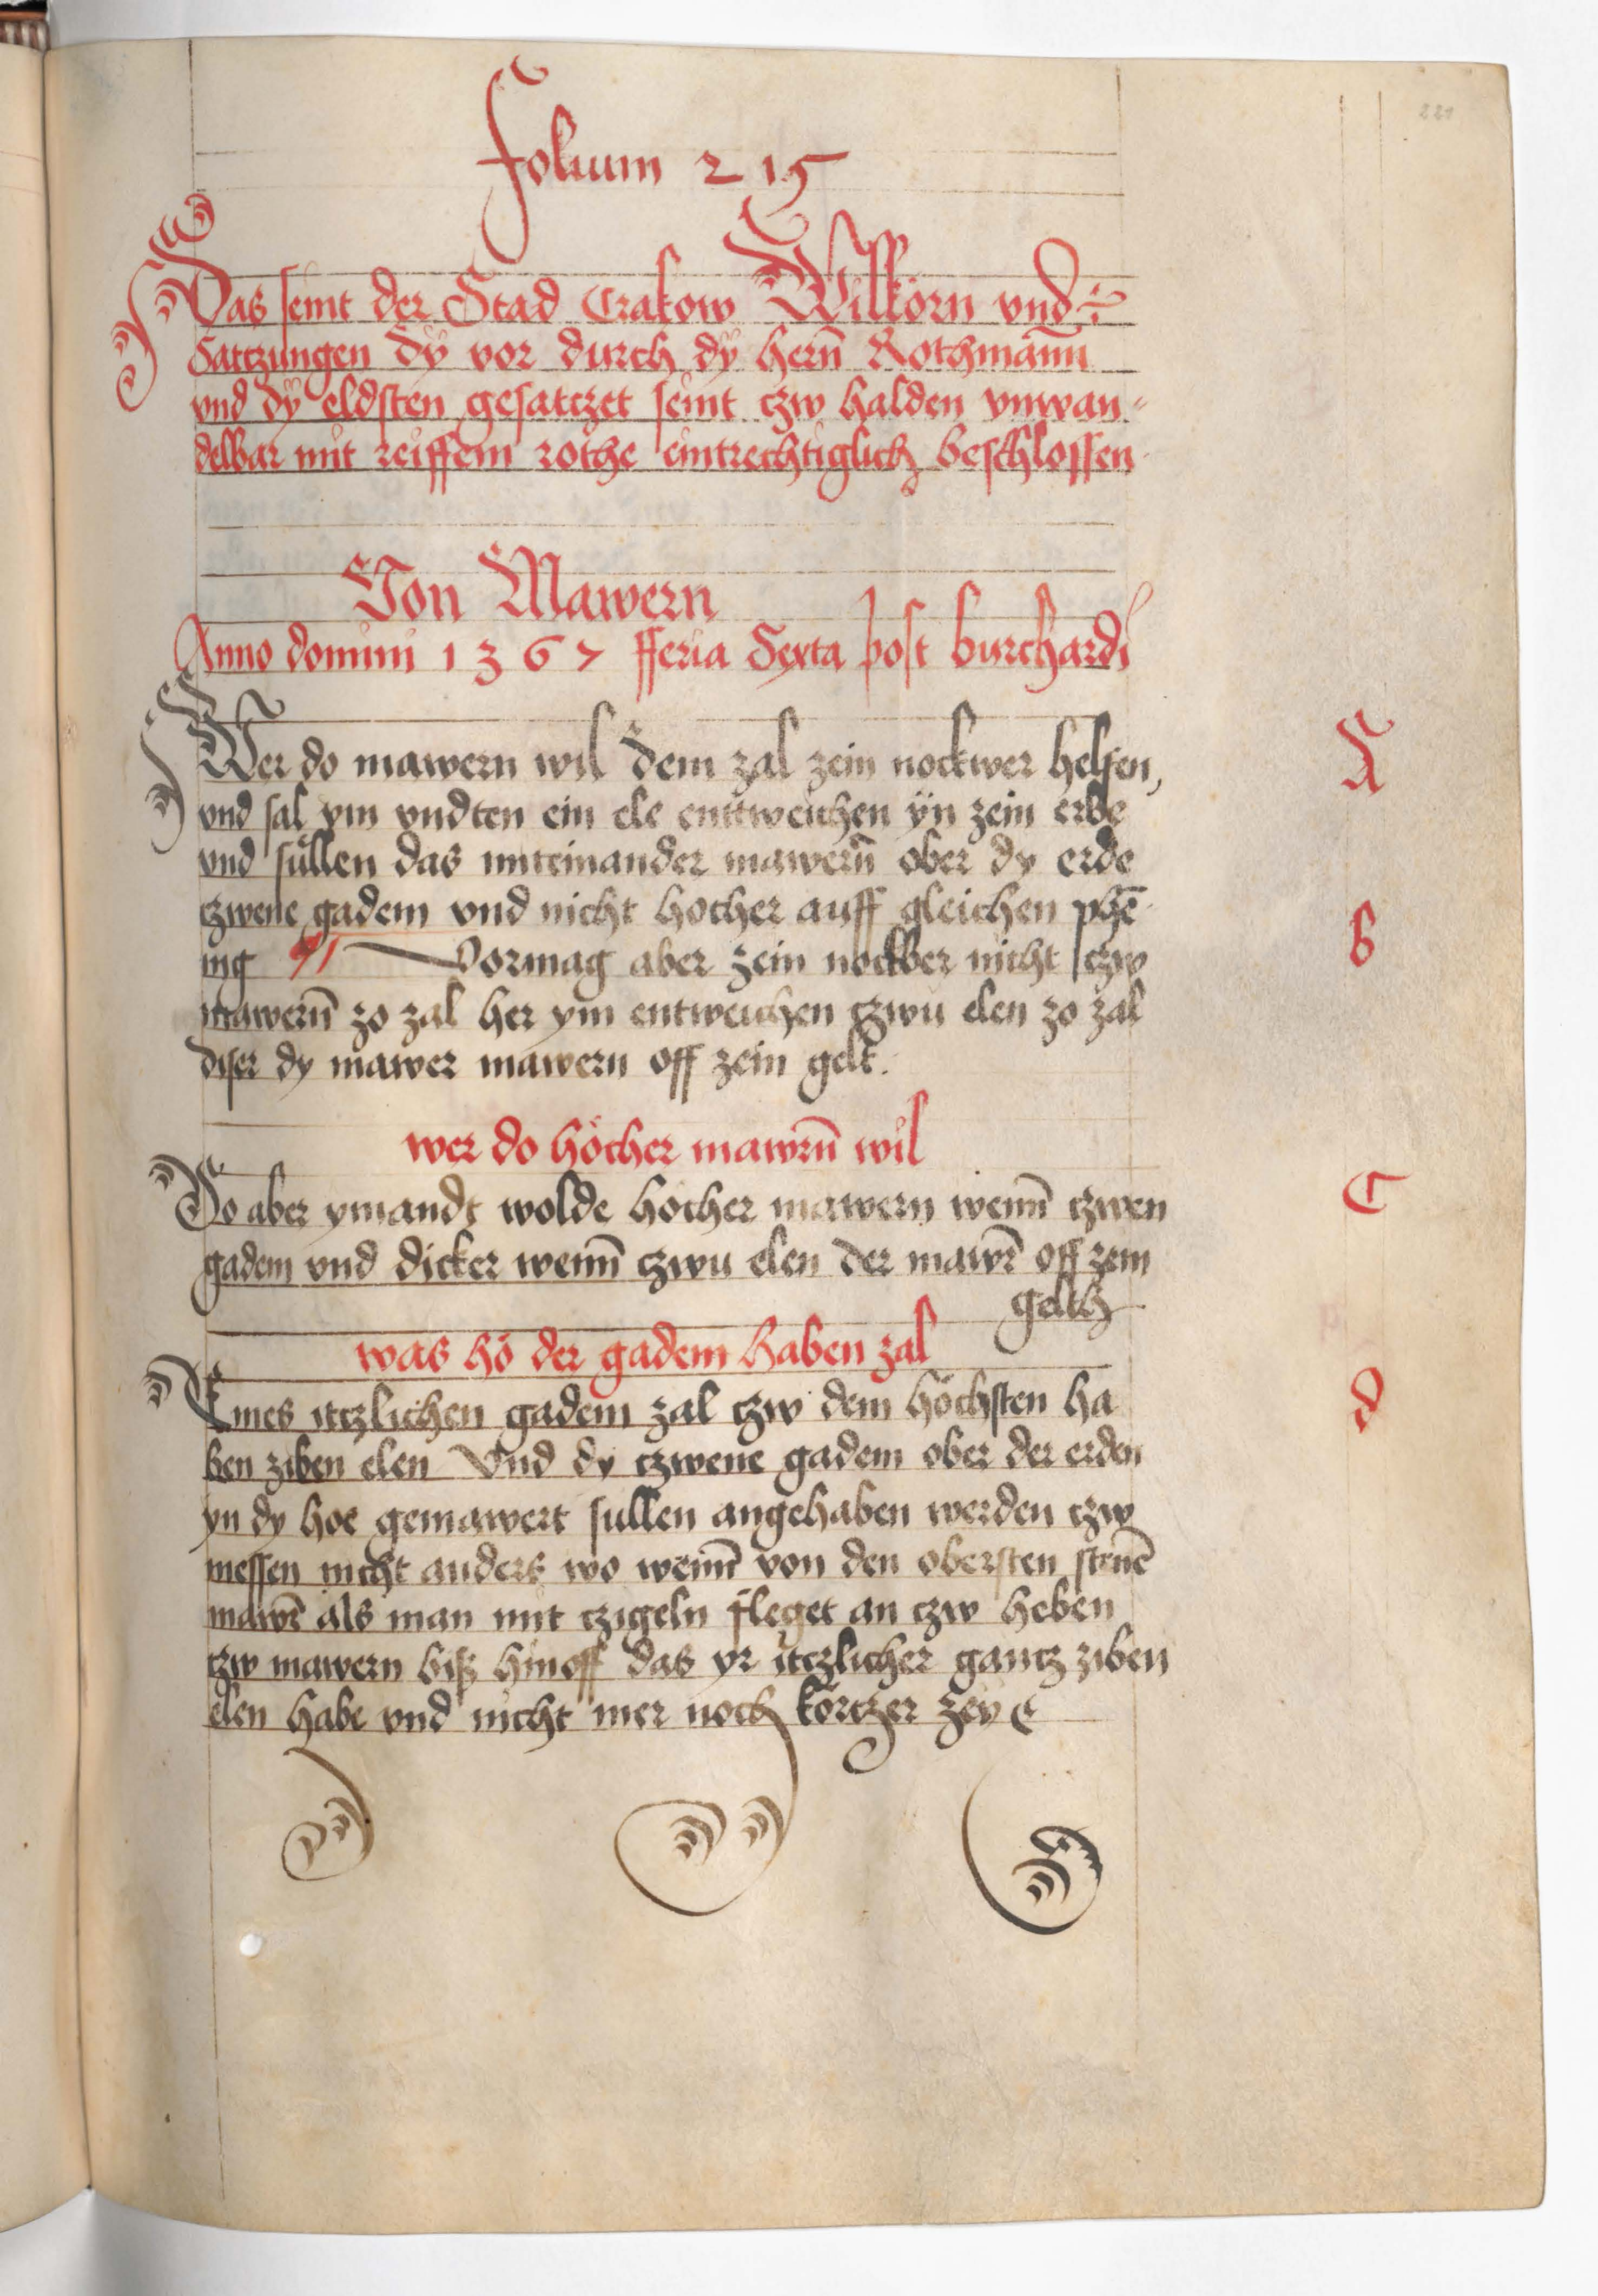 221
Folium 215
Das seint der Stad Crakow Wilkörn vnd
Satczungen dÿ vor durch dÿ hern̄ Rothmann̄
vnd dÿ eldsten gesatczet seint czw halden vnwan⸗
delbar mit reiffem rothe eintrechtiglich beschlossen
Von Mawern
Anno domini 1367 fferia Sexta post burchardi
A
Wer do mawern wil dem zal zein nockwer helfen,
vnd sal ym vndten ein ele enttweichen ÿn zein erbe
vnd sullen das miteinander mawern̄ ober dy erde
B
czwene gadem vnd nicht hocher auff gleichen phē
ing ¶ Vormag aber zein nockber nicht czw
mawern̄ zo zal her ym entweichen czwu elen zo zal
diser dy mawer mawern off zein gelt.
wer do höcher mawrn̄ wil
C
Do aber ymandt wolde hocher mawern wenn̄ czwen
gadem vnd dicker wenn̄ czwu elen der mawr̄ off zein
geltt
was hö der gadem haben zal
d
Eines itczlichen gadem zal czw dem höchsten ha
ben ziben elen Vnd dy czwene gadem ober der erden
yn dy hoe gemawert sullen angehaben werden czw
messen nicht anders wo wenn̄ von den obersten stenē
mawr̄ als man mit czigeln fleget an czw heben
czw mawern biß hinoff das yr itczlicher gantz ziben
elen habe vnd nicht mer noch körtzer zey